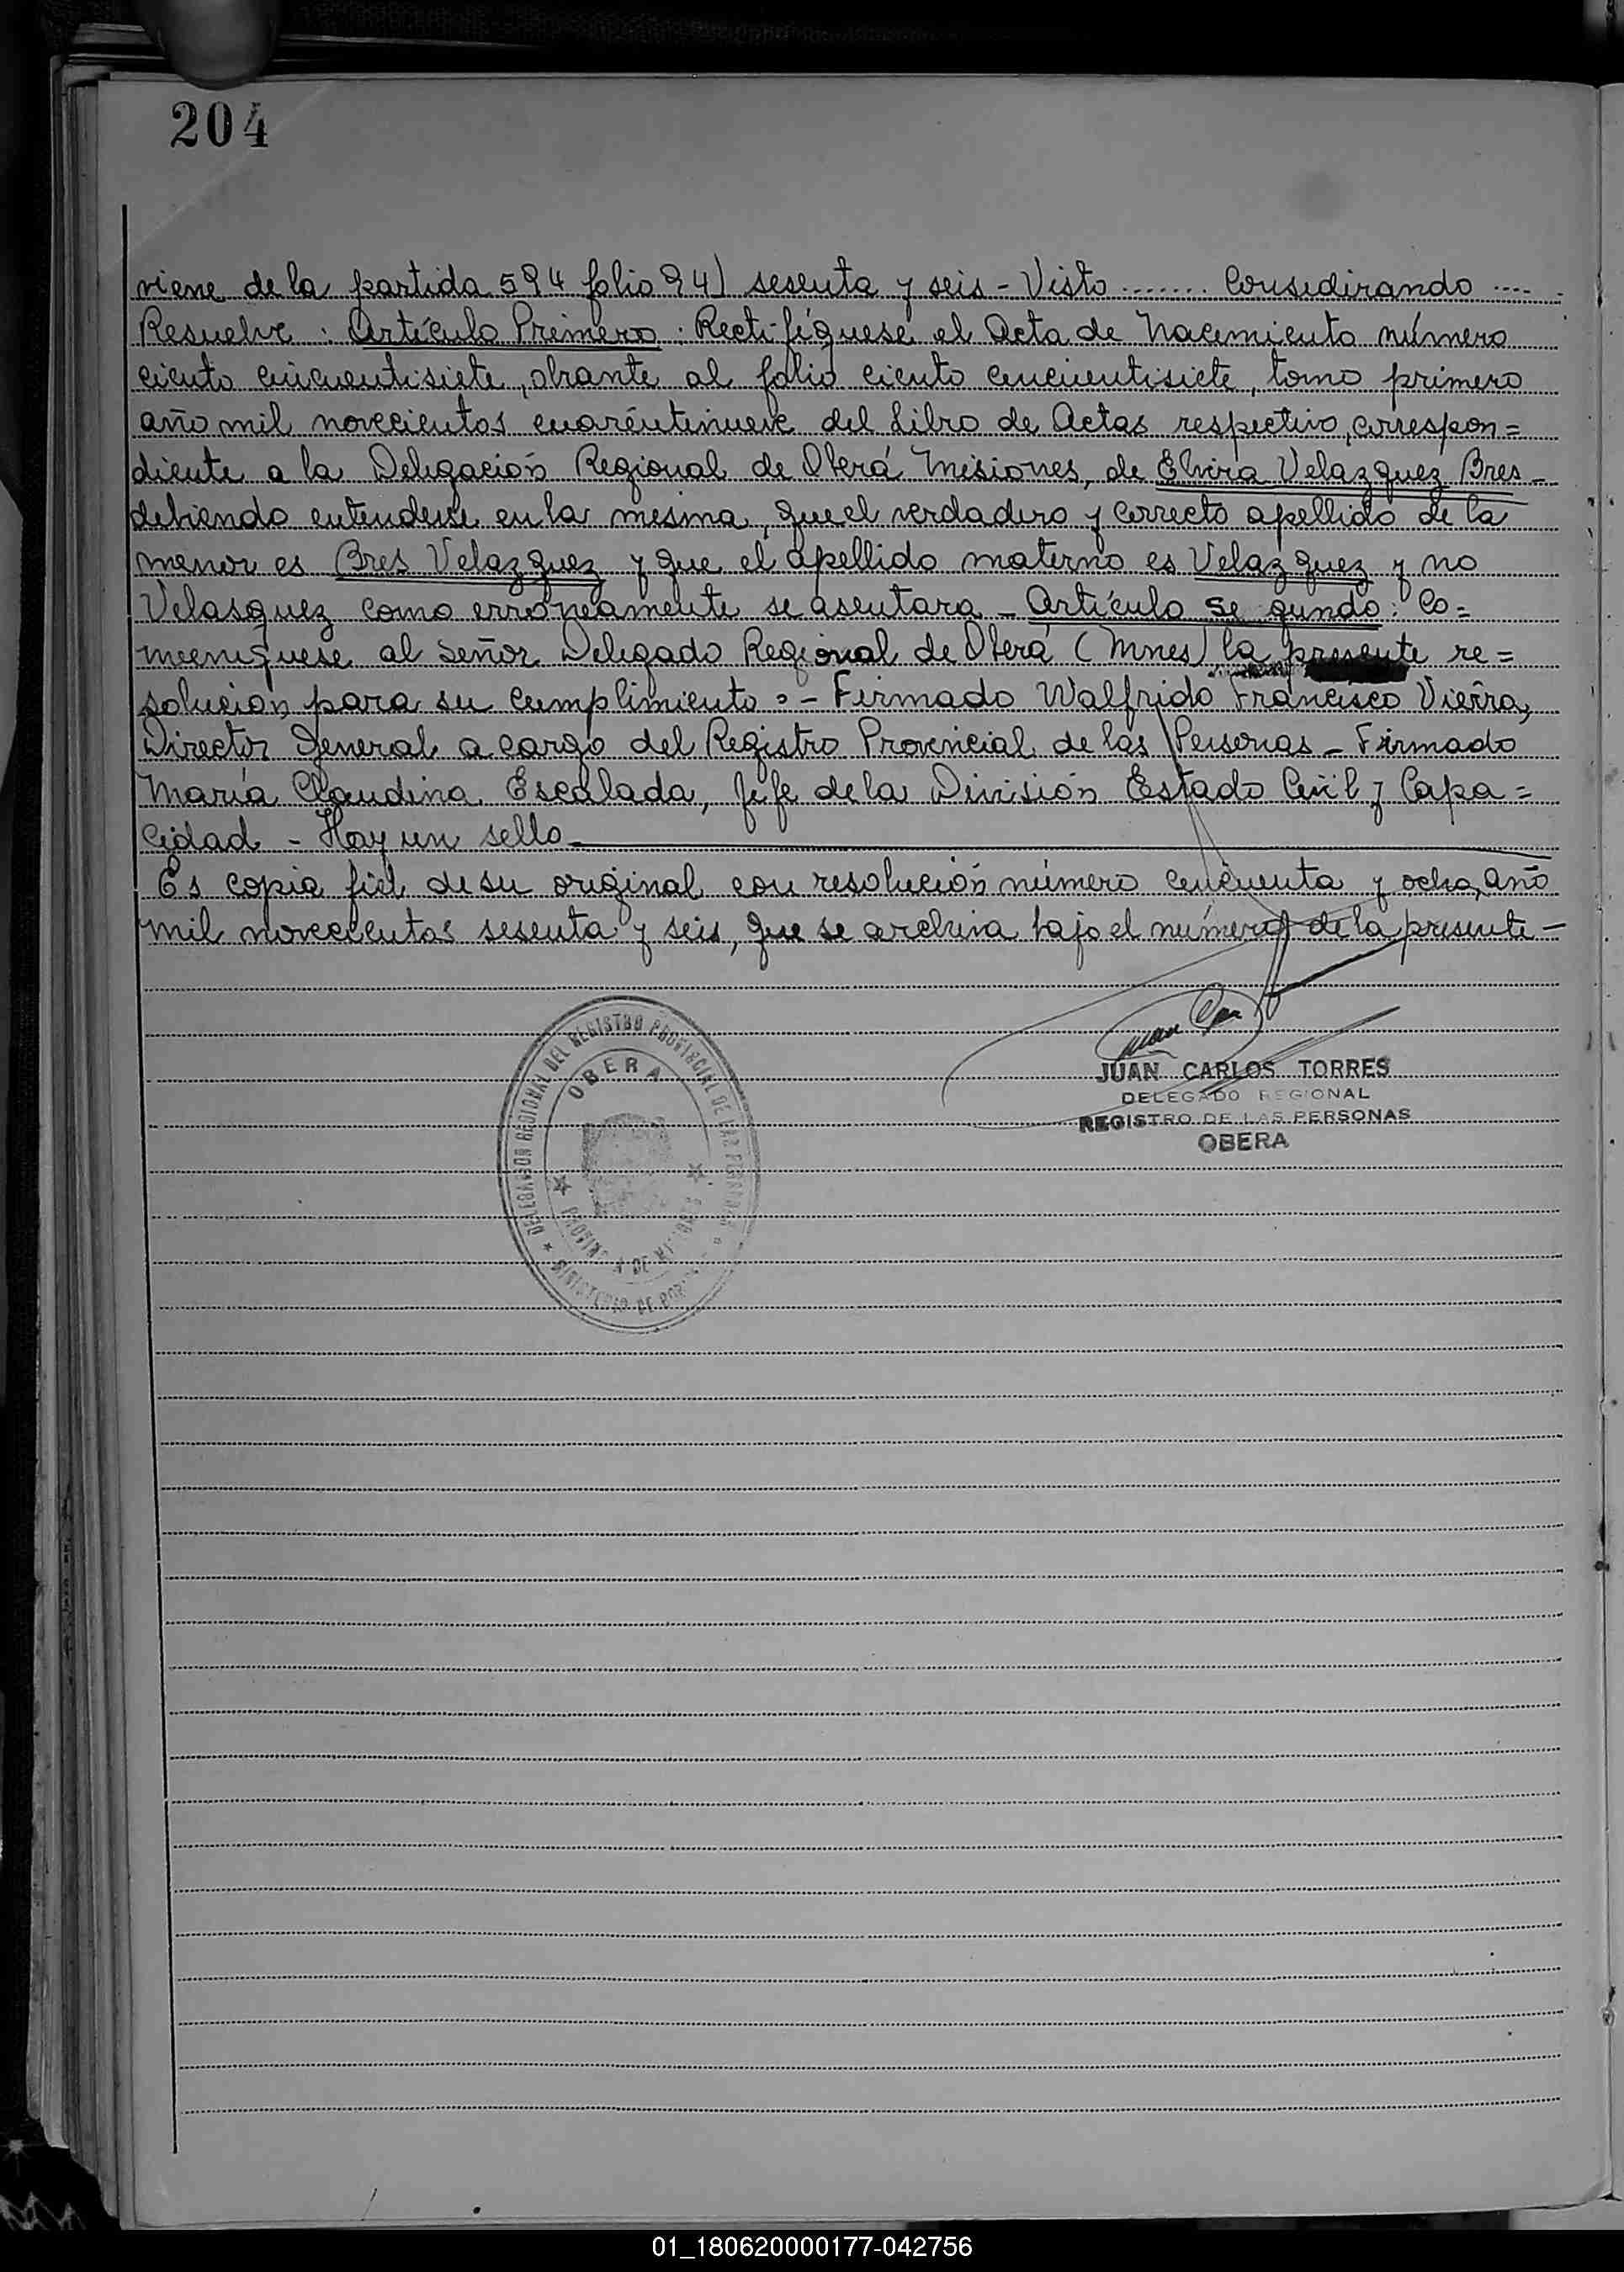 204
viene de la partida 594 folio 94) sesenta y seis - Visto ........ Considirando ....
Resuelve : Artículo Primero : Rectifíquese el Acta de Nacimiento número
ciento cincuentisiete, obrante al folio ciento cincuentisiete, tomo primero
año mil novecientos cuarentinueve del Libro de Actas respectivo, correspon=
diente a la Delegación Regional de Oberá Misiones, de Elvira Velazquez Bres -
debiendo entenderse en la misma, que el verdadero y correcto apellido de la
menor es Bres Velazquez y que el apellido materno es Velazquez y no
Velasquez como erróneamente se asentara - Artículo segundo : Co=
muníquese al Señor Delegado Regional de Oberá (Mnes) la presente re=
solución para su cumplimiento : - Firmado Walfrido Francisco Vierra,
Director General a cargo del Registro Provincial de las Personas - Firmado
María Claudina Escalada, Jefe de la División Estado Civil y Capa=
cidad - Hay un sello
Es copia fiel de su original con resolución número cincuenta y ocho, año
mil novecientos sesenta y seis, que se archiva bajo el número de la presente -
JUAN CARLOS TORRES
DELEGADO REGIONAL
REGISTRO DE LAS PERSONAS
OBERA
DELEGACION REGIONAL DEL REGISTRO PROVINCIAL DE LAS PERSONAS
OBERA
MINISTERIO DE
01_180620000177-042756